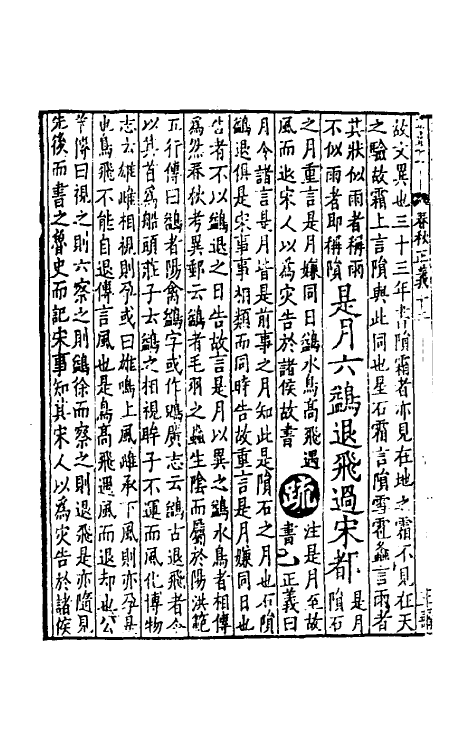 春秋正義十二
故文異也三十三年書隕霜者亦見在地之霜不見在天
之驗故霜上言隕與此同也星石霜言隕雪雹螽言雨者
其狀似雨者稱雨
不似雨者即稱隕
是月六鷁退飛過宋都
是月隕石
之月重言是月嫌同日鷁水鳥高飛遇
風而退宋人以為灾告於諸侯故書
疏
注是月至故
書 正義曰
月令諸言是月皆是前事之月知此是隕石之月也石隕
鷁退俱是宋事事相類而同時告故重言是月嫌同日也
告者不以鷁退之日告故言是月以異之鷁水鳥相傳
為然春秋考異郵云鷁者毛羽之蟲生陰而屬於陽洪範
五行傳曰鷁者陽禽鷁字或作鶂廣志云鷁古退飛者今
以其首為船頭莊子云鷁之相視眸子不運而風化博物
志云雄雌相視則孕或曰雄鳴上風雌承下風則亦孕是
也鳥飛不能自退傳言風也是鳥高飛遇風而退却也公
羊傳曰視之則六察之則鷁徐而察之則退飛是亦隨見
先後而書之魯史而記宋事知其宋人以為灾告於諸侯